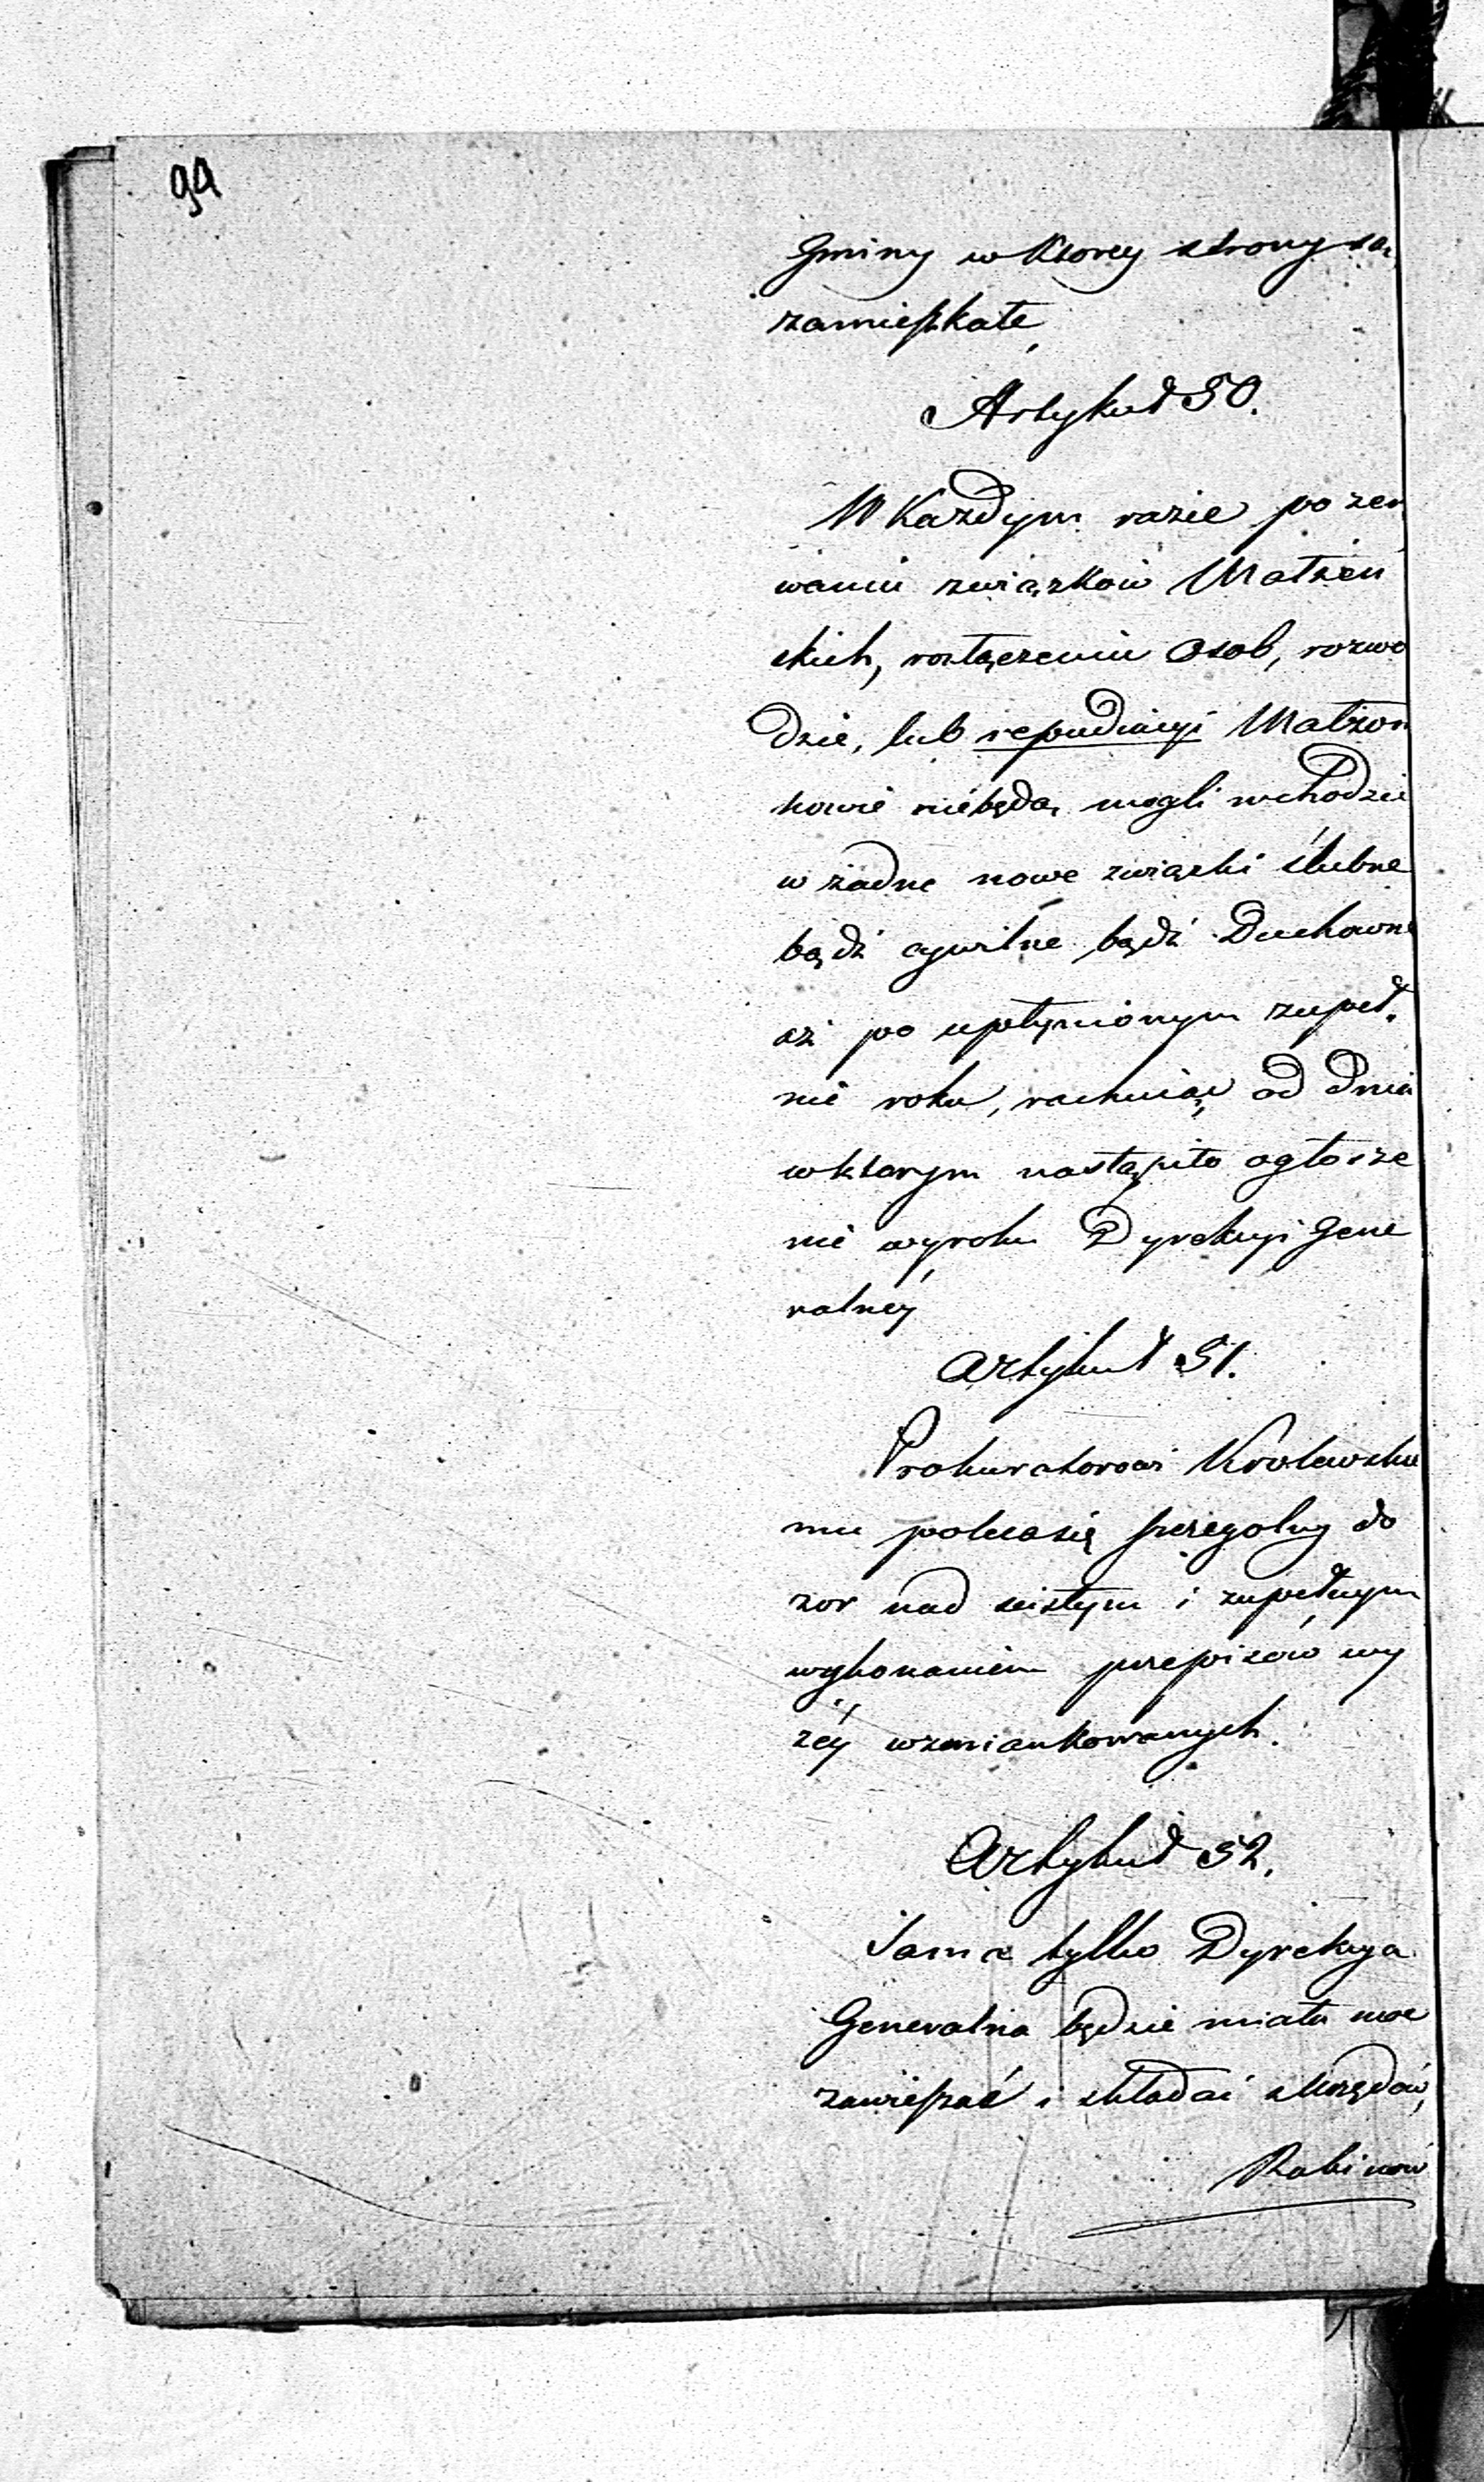 94
Gminy w ktorey strony są
zamieszkałe
Artykuł 50.
W Każdym razie po zer
waniu związków Małżeń
skich, rozłączeniu Osob, rozwo
dzie, lub repudiacyi Małżon
kowie niebędą mogli wchodzić
w żadne nowe związki ślubne
bądź cywilne bądź Duchowne
aż po upłynionym zupeł
nie roku, rachuiąc od dnia
w ktorym nastąpiło ogłosze
nie wyroku Dyrekcyi Gene
ralnéy
Artykuł 51.
Prokuratorowi Krolewskie
mu poleca się szczegolny do
zor nad scisłym i zupełnym
wykonaniem przepisów wy
żéy wzmiankowanych.
Artykuł 52.
Sama tylko Dyrekcya
Generalna będzie miała moc
zawieszać i składać z Urzędów
Rabinów